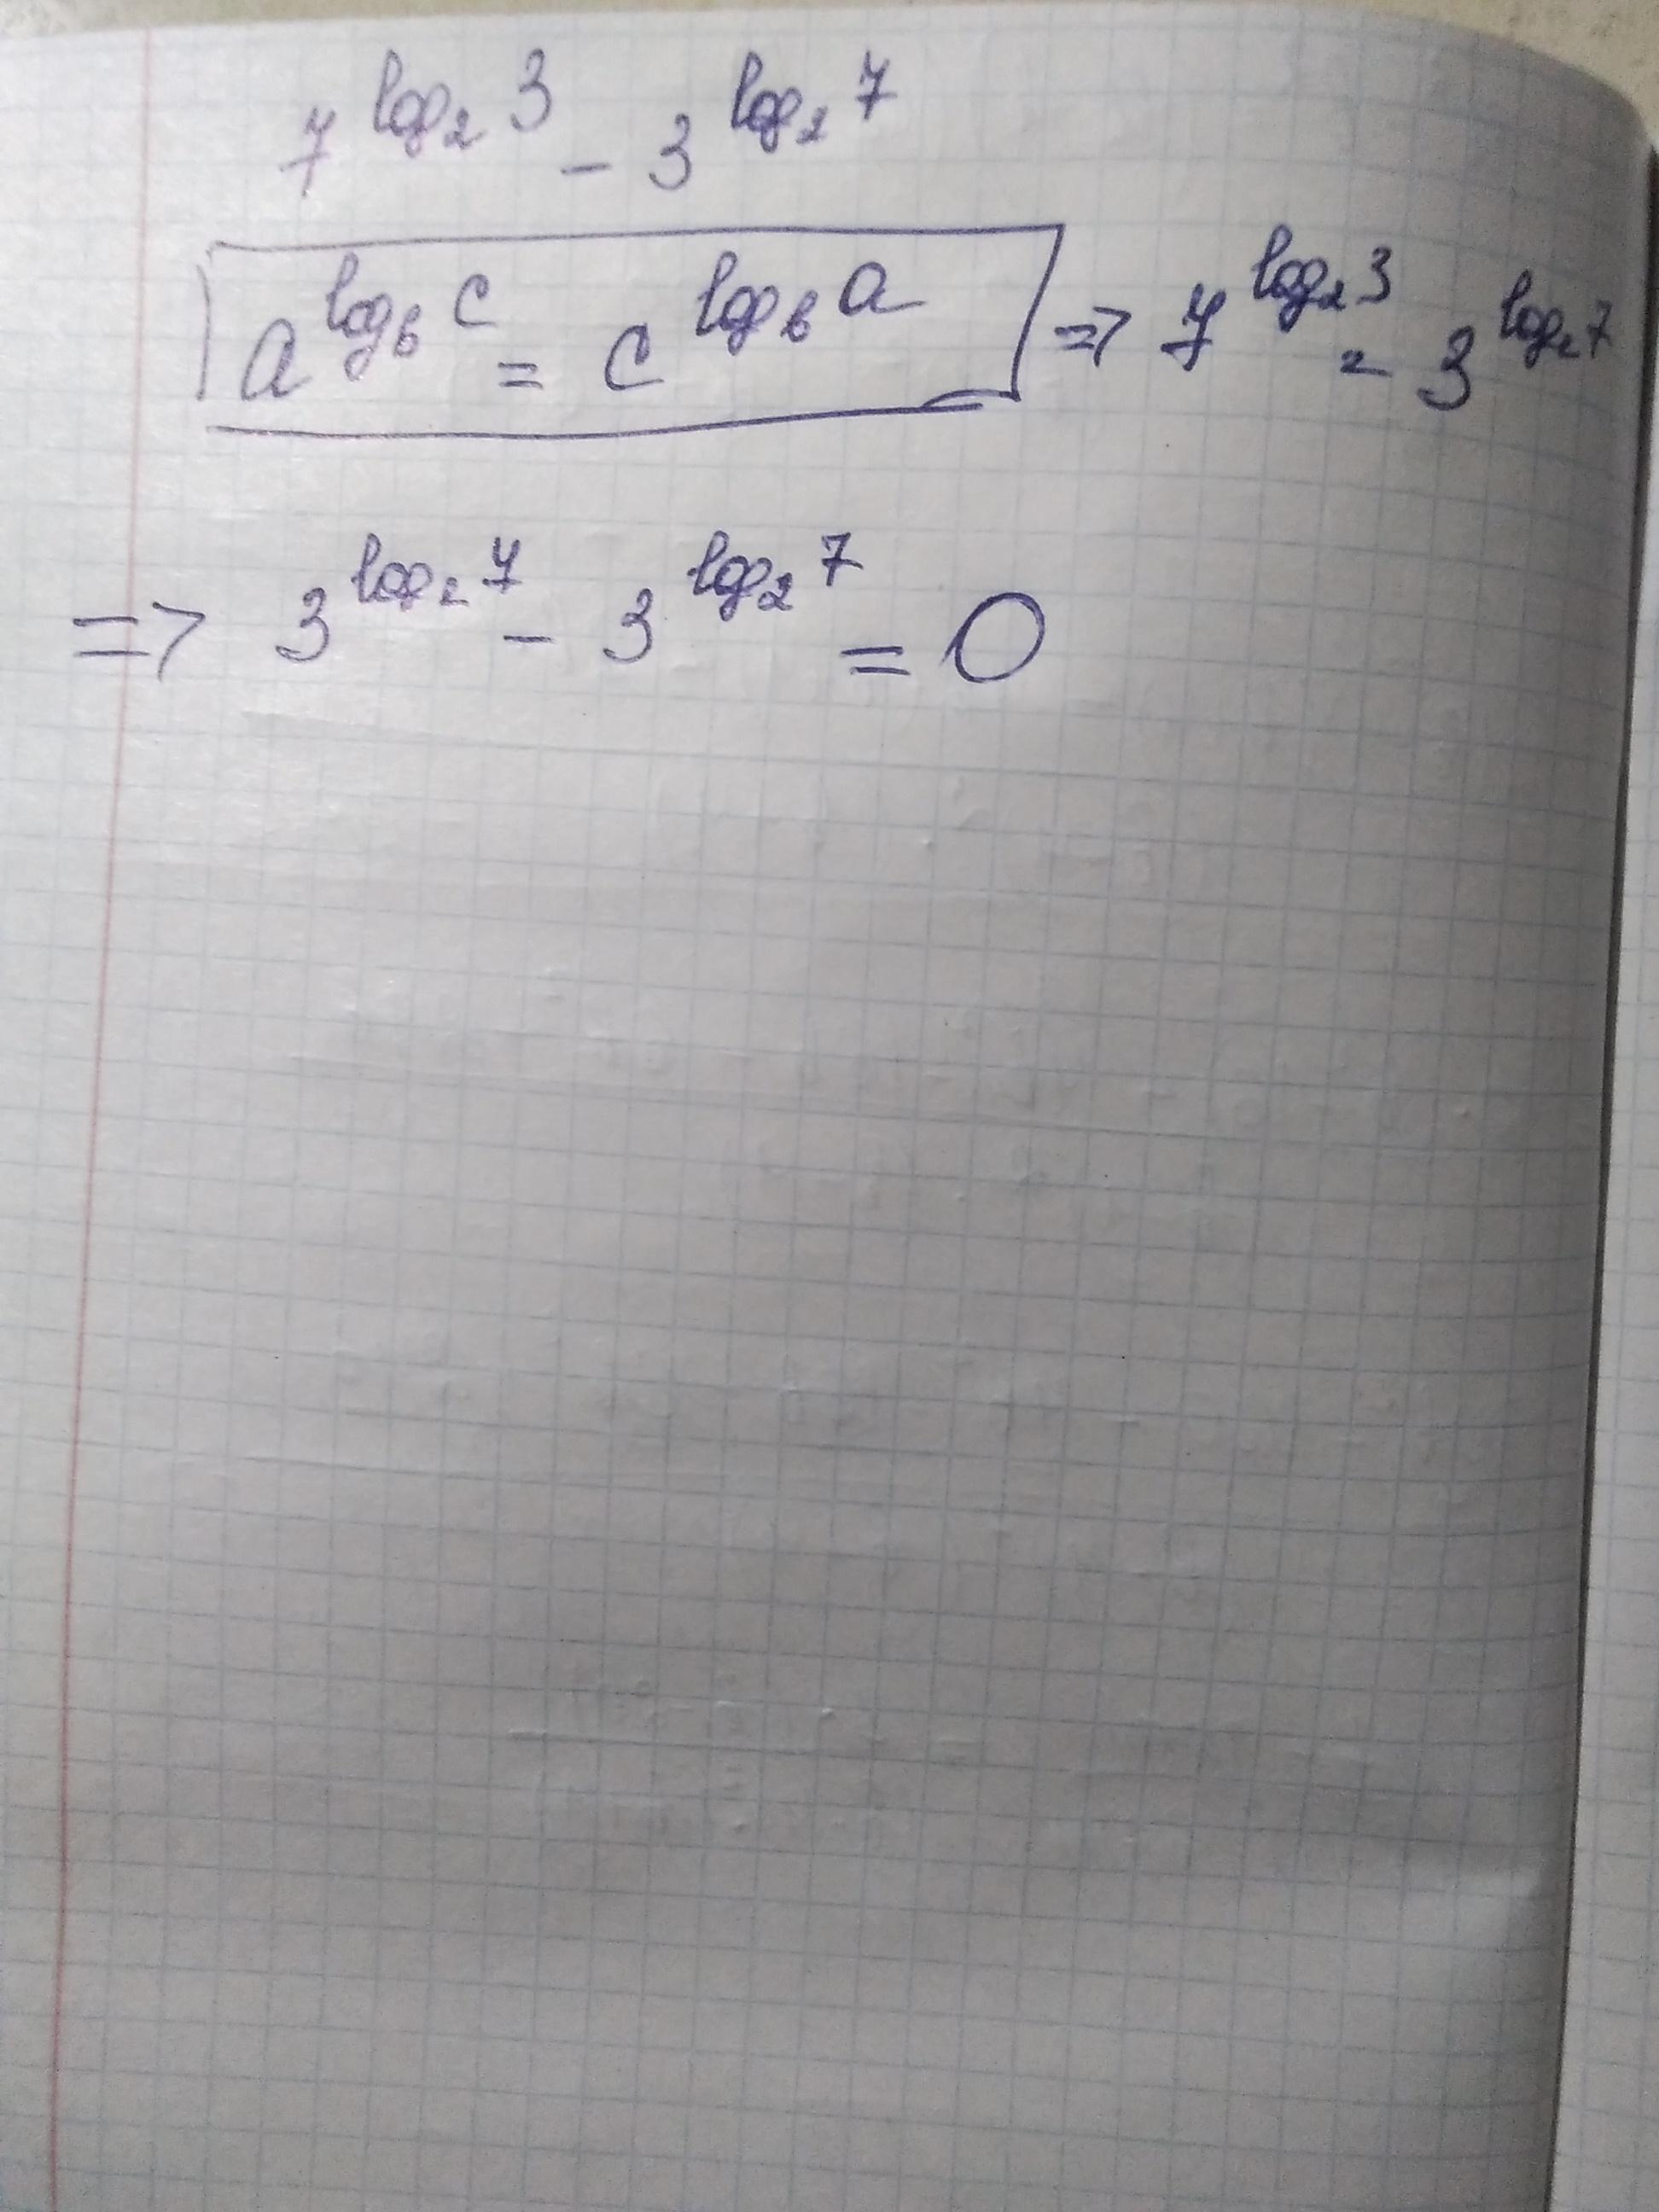 7^{log_2 3} - 3^{log_2 7}
a^{log_b c} = c^{log_b a} => 7^{log_2 3} = 3^{log_2 7}
=> 3^{log_2 7} - 3^{log_2 7} = 0